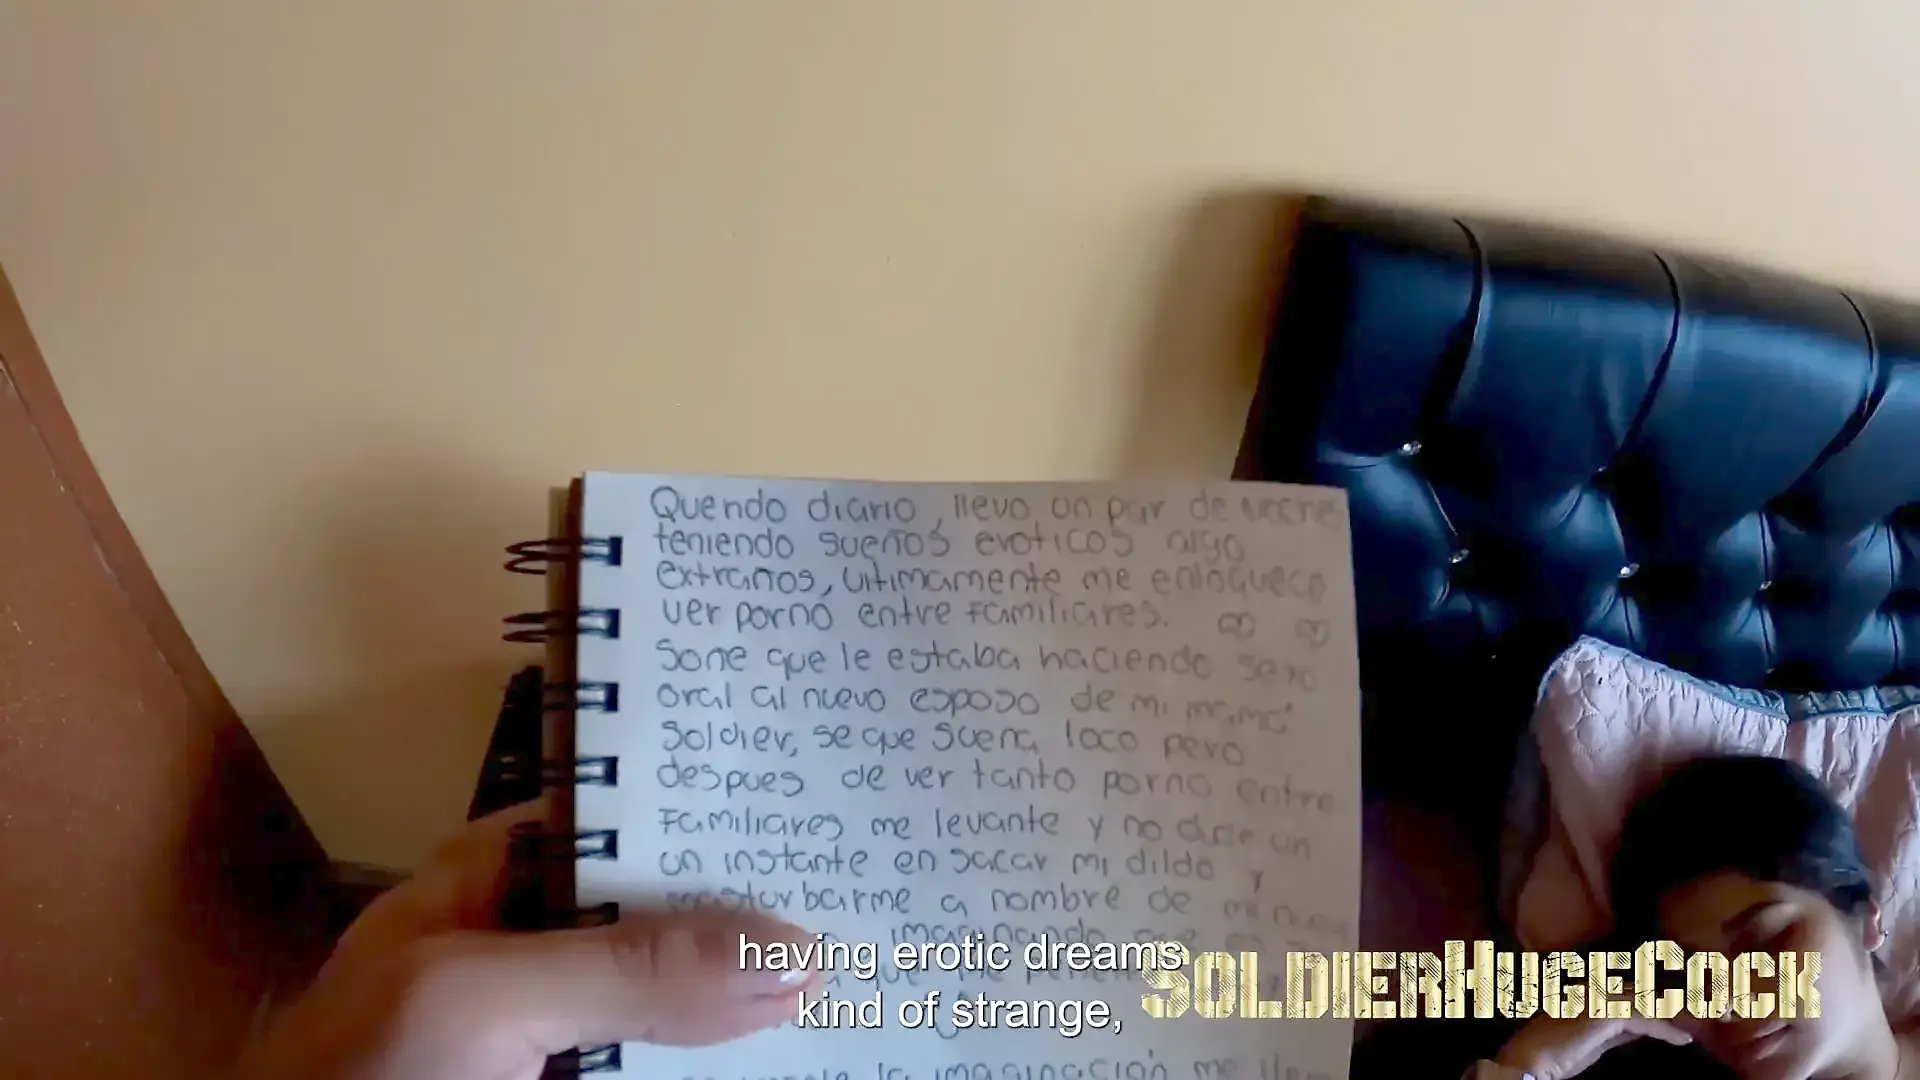 Querido diario, llevo un par de
teniendo sueños eroticos algo
extraños, ultimamente me enloquece
ver porno entre familiares.
Soñe que le estaba haciendo sexo
oral al nuevo esposo de mi mamá
Soldier, se que suena loco pero
despues de ver tanto porno entre
Familiares me levante y no dude un
un instante en sacar mi dildo y
masturbarme a nombre de mi
imaginando que
que me
la imaginación me
having erotic dreams
kind of strange,
SOLDIERHUGECOCK